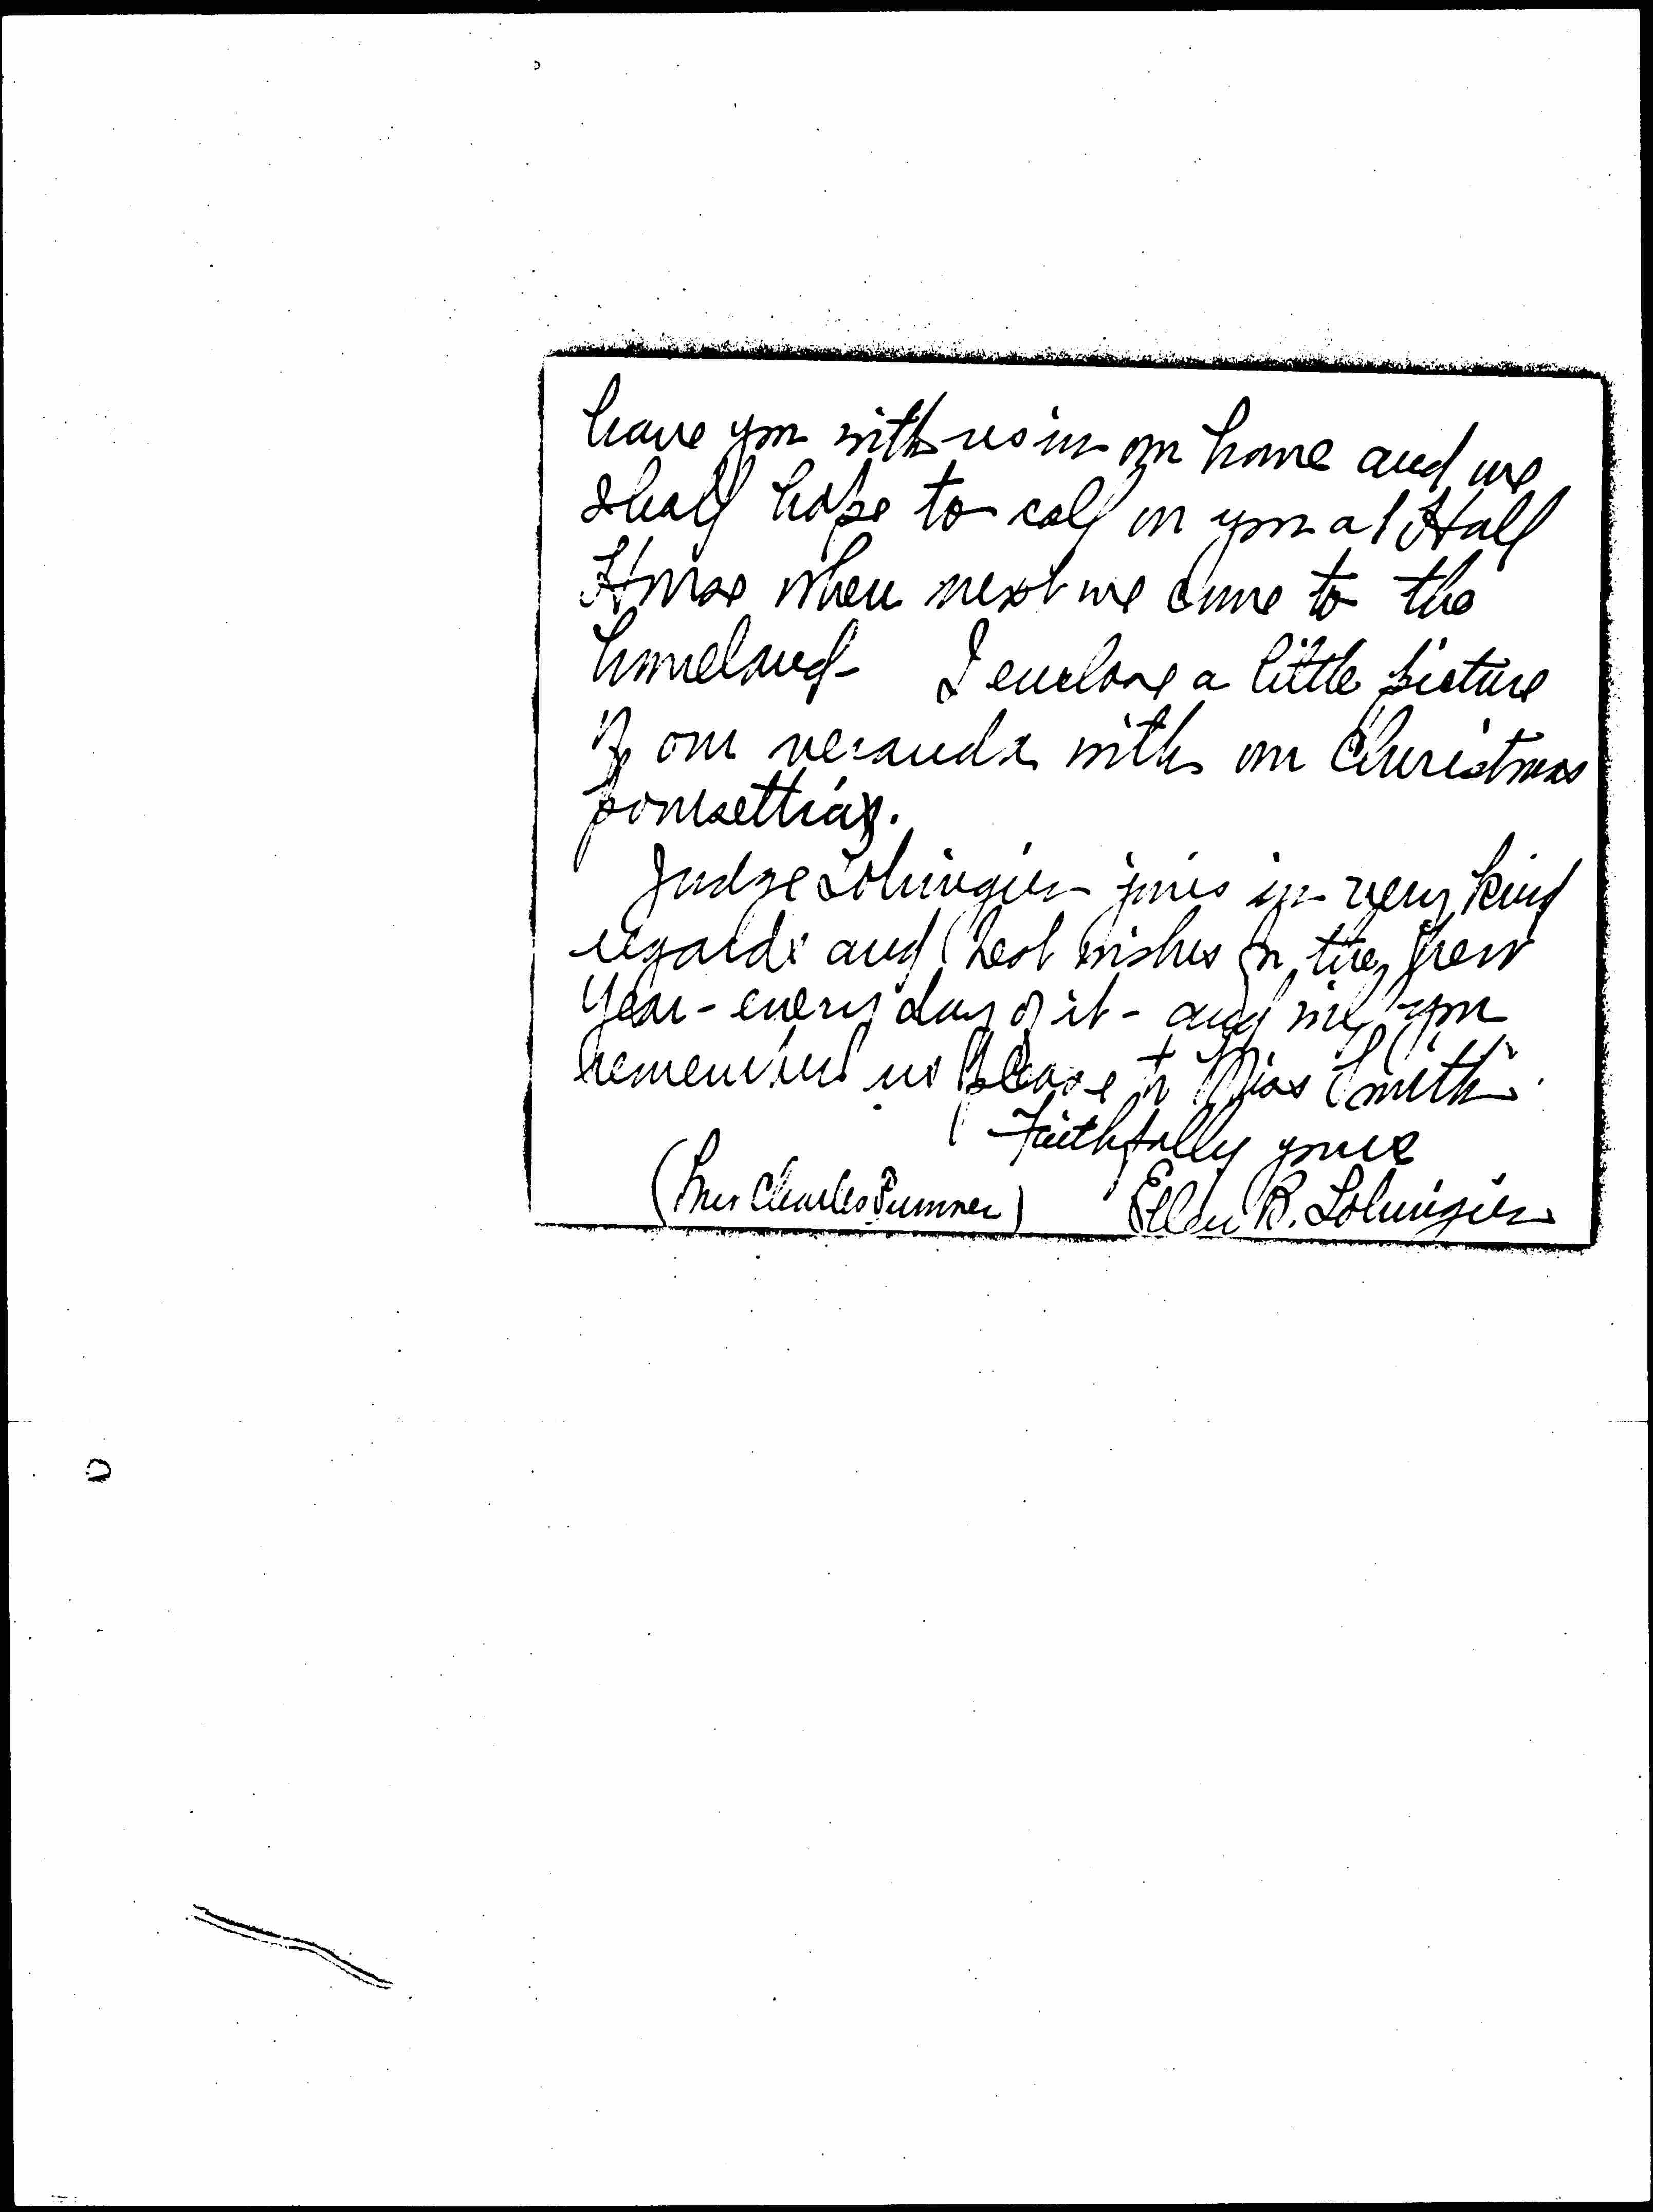 have you with us in our home and we
shall hope to call on you at Hall
House when next we come to the
homeland - I enclose a little picture
of our veranda with our Christmas
poinsettias.
Judge Lobingier joins in very kind
regards and best wishes for the New
Year - every day of it - and will you
remember us please to Miss Smith.
Faithfully yours
(Mrs Charles Sumner) Ellen B. Lobingier